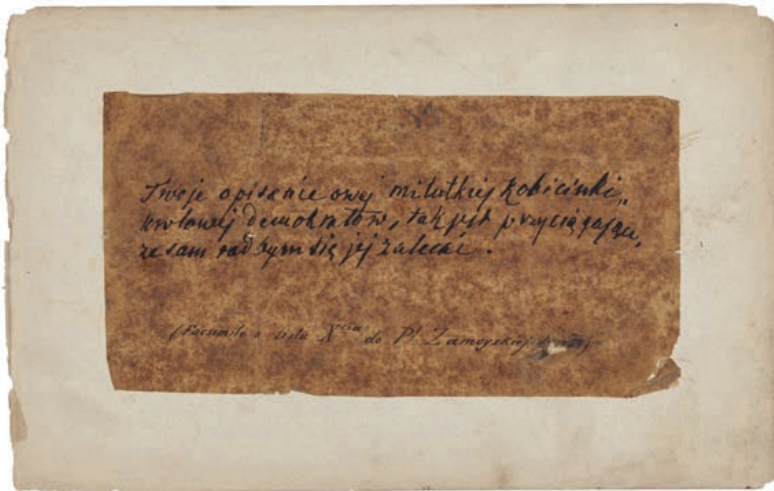 Twoje opisanie owej milutkiej kobicinki,
krolowej demokratów, tak jest przyciągające,
że sam rad bym się jej zalecać.
(Facsimile z listu Xcia do Pł Zamoyskiej